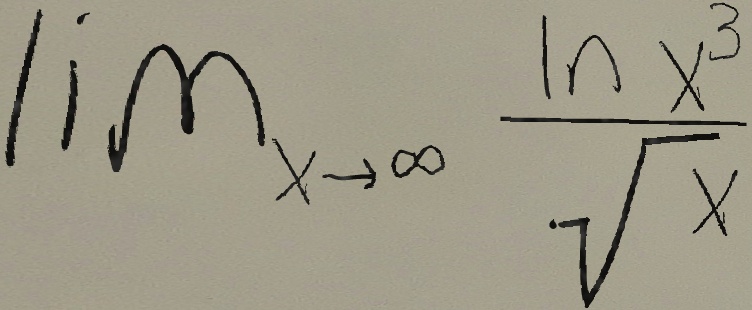 lim x→∞ ln x³ / √x